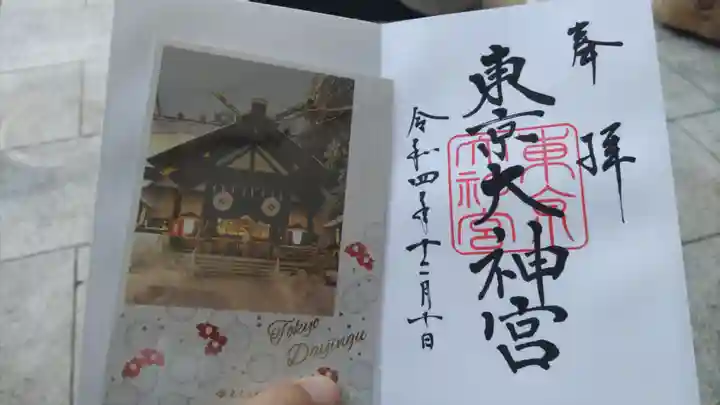 奉拝
東京大神宮
東京大神宮
令和四年十二月十日
Tokyo
Daijingu